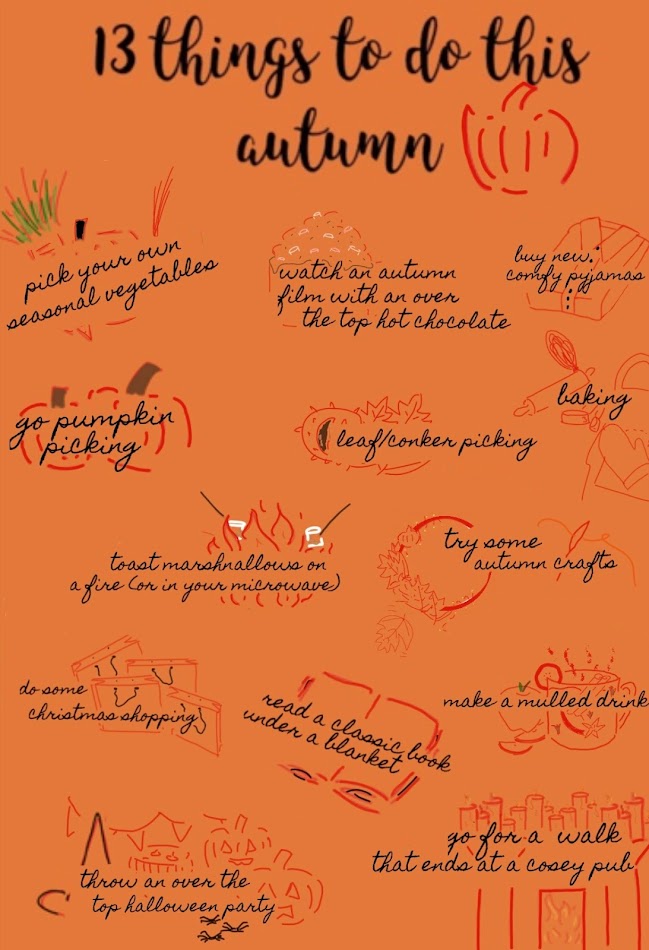 13 things to do this
autumn
pick your own
seasonal vegetables
watch an autumn
film with an over
the top hot chocolate
buy new
comfy pyjamas
go pumpkin
picking
leaf/conker picking
baking
toast marshnallows on
a fire (or in your microwave)
try some
autumn crafts
do some
christmas shopping
read a classic book
under a blanket
make a mulled drink
throw an over the
top halloween party
go for a walk
that ends at a cosey pub